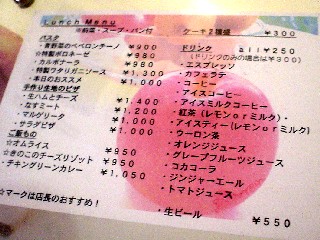 Lunch Menu
※前菜・スープ・パン付
パスタ
・青野菜のペペロンチーノ ¥900
☆特製ボロネーゼ ¥980
・カルボナーラ ¥980
・特製ワタリガニソース ¥1,300
・本日のおススメ ¥1,000
手作り生地のピザ
・生ハムとチーズ ¥1,400
・なすミート ¥1,200
・マルゲリータ ¥1,000
・サラダピザ ¥1,000
ご飯もの
☆オムライス ¥950
☆きのこのチーズリゾット ¥950
・チキングリーンカレー ¥1,050
☆マークは店長のおすすめ!
ケーキ2種盛 ¥300
ドリンク all¥250
(ドリンクのみの場合は¥300)
・エスプレッソ
・カフェラテ
・コーヒー
・アイスコーヒー
・アイスミルクコーヒー
・紅茶(レモンorミルク)
・アイスティー(レモンorミルク)
・ウーロン茶
・オレンジジュース
・グレープフルーツジュース
・コカコーラ
・ジンジャーエール
・トマトジュース
・生ビール ¥550